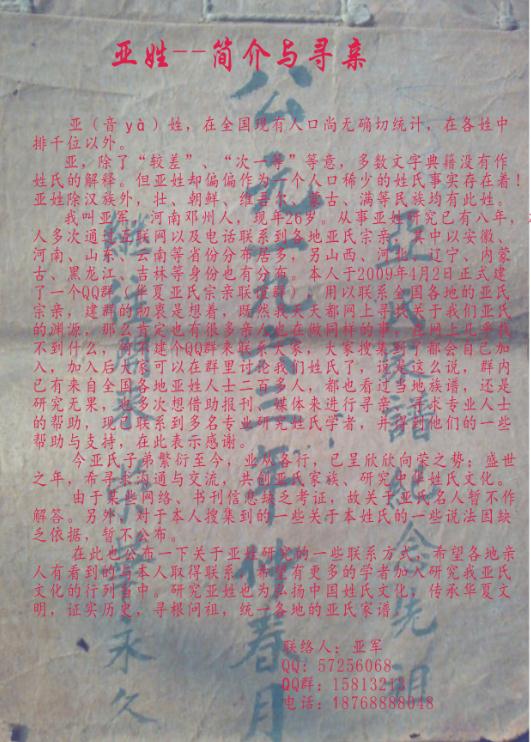 亚姓--简介与寻亲
亚（音yà）姓，在全国现有人口尚无确切统计，在各姓中
排千位以外。
亚，除了“较差”、“次一等”等意，多数文字典籍没有作
姓氏的解释。但亚姓却偏偏作为一个人口稀少的姓氏事实存在着！
亚姓除汉族外，壮、朝鲜、维吾尔、蒙古、满等民族均有此姓。
我叫亚军，河南邓州人，现年26岁。从事亚姓研究已有八年，本
人多次通过互联网以及电话联系到各地亚氏宗亲，其中以安徽、
河南、山东、云南等省份分布居多，另山西、河北、辽宁、内蒙
古、黑龙江、吉林等身份也有分布。本人于2009年4月2日正式建
了一个QQ群（华夏亚氏宗亲联谊群），用以联系全国各地的亚氏
宗亲，建群的初衷是想着，既然我天天都网上寻找关于我们亚氏
的渊源，那么肯定也有很多亲人也在做同样的事，在网上几乎找
不到什么，何不建个QQ群来联系大家，大家搜集到了都会自己加
入，加入后大家可以在群里讨论我们姓氏了，说是这么说，群内
已有来自全国各地亚姓人士二百多人，都也看过当地族谱，还是
研究无果，也多次想借助报刊、媒体来进行寻亲、寻求专业人士
的帮助，现已联系到多名专业研究姓氏学者，并得到他们的一些
帮助与支持，在此表示感谢。
今亚氏子弟繁衍至今，业从各行，已呈欣欣向荣之势；盛世
之年，希寻求沟通与交流，共创亚氏家族、研究中华姓氏文化。
由于某些网络、书刊信息缺乏考证，故关于亚氏名人暂不作
解答。另外，对于本人搜集到的一些关于本姓氏的一些说法因缺
乏依据，暂不公布。
在此也公布一下关于亚姓研究的一些联系方式，希望各地亲
人有看到的与本人取得联系，希望有更多的学者加入研究我亚氏
文化的行列当中。研究亚姓也为弘扬中国姓氏文化，传承华夏文
明，证实历史，寻根问祖，统一各地的亚氏家谱。
联络人：亚军
QQ：57256068
QQ群：15813213
电话：18768888048